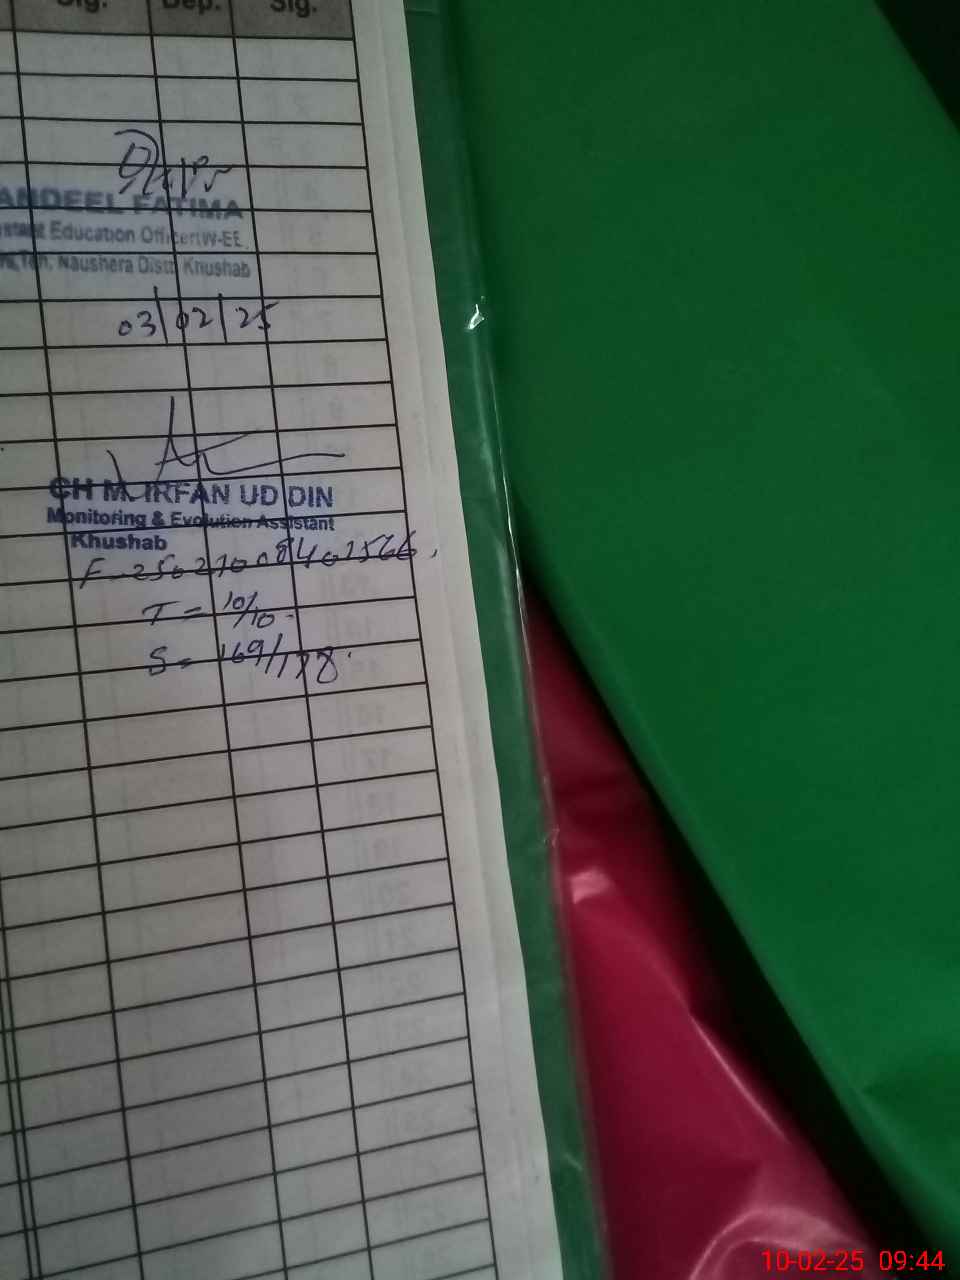 Sig. Dep. Sig.
ANDEEL FATIMA
Education Officer W-EE
Teh. Naushera Distt Khushab
03/02/25
CH M. IRFAN UD DIN
Monitoring & Evolution Assistant
Khushab
T = 10/10
S = 169/178
10-02-25 09:44